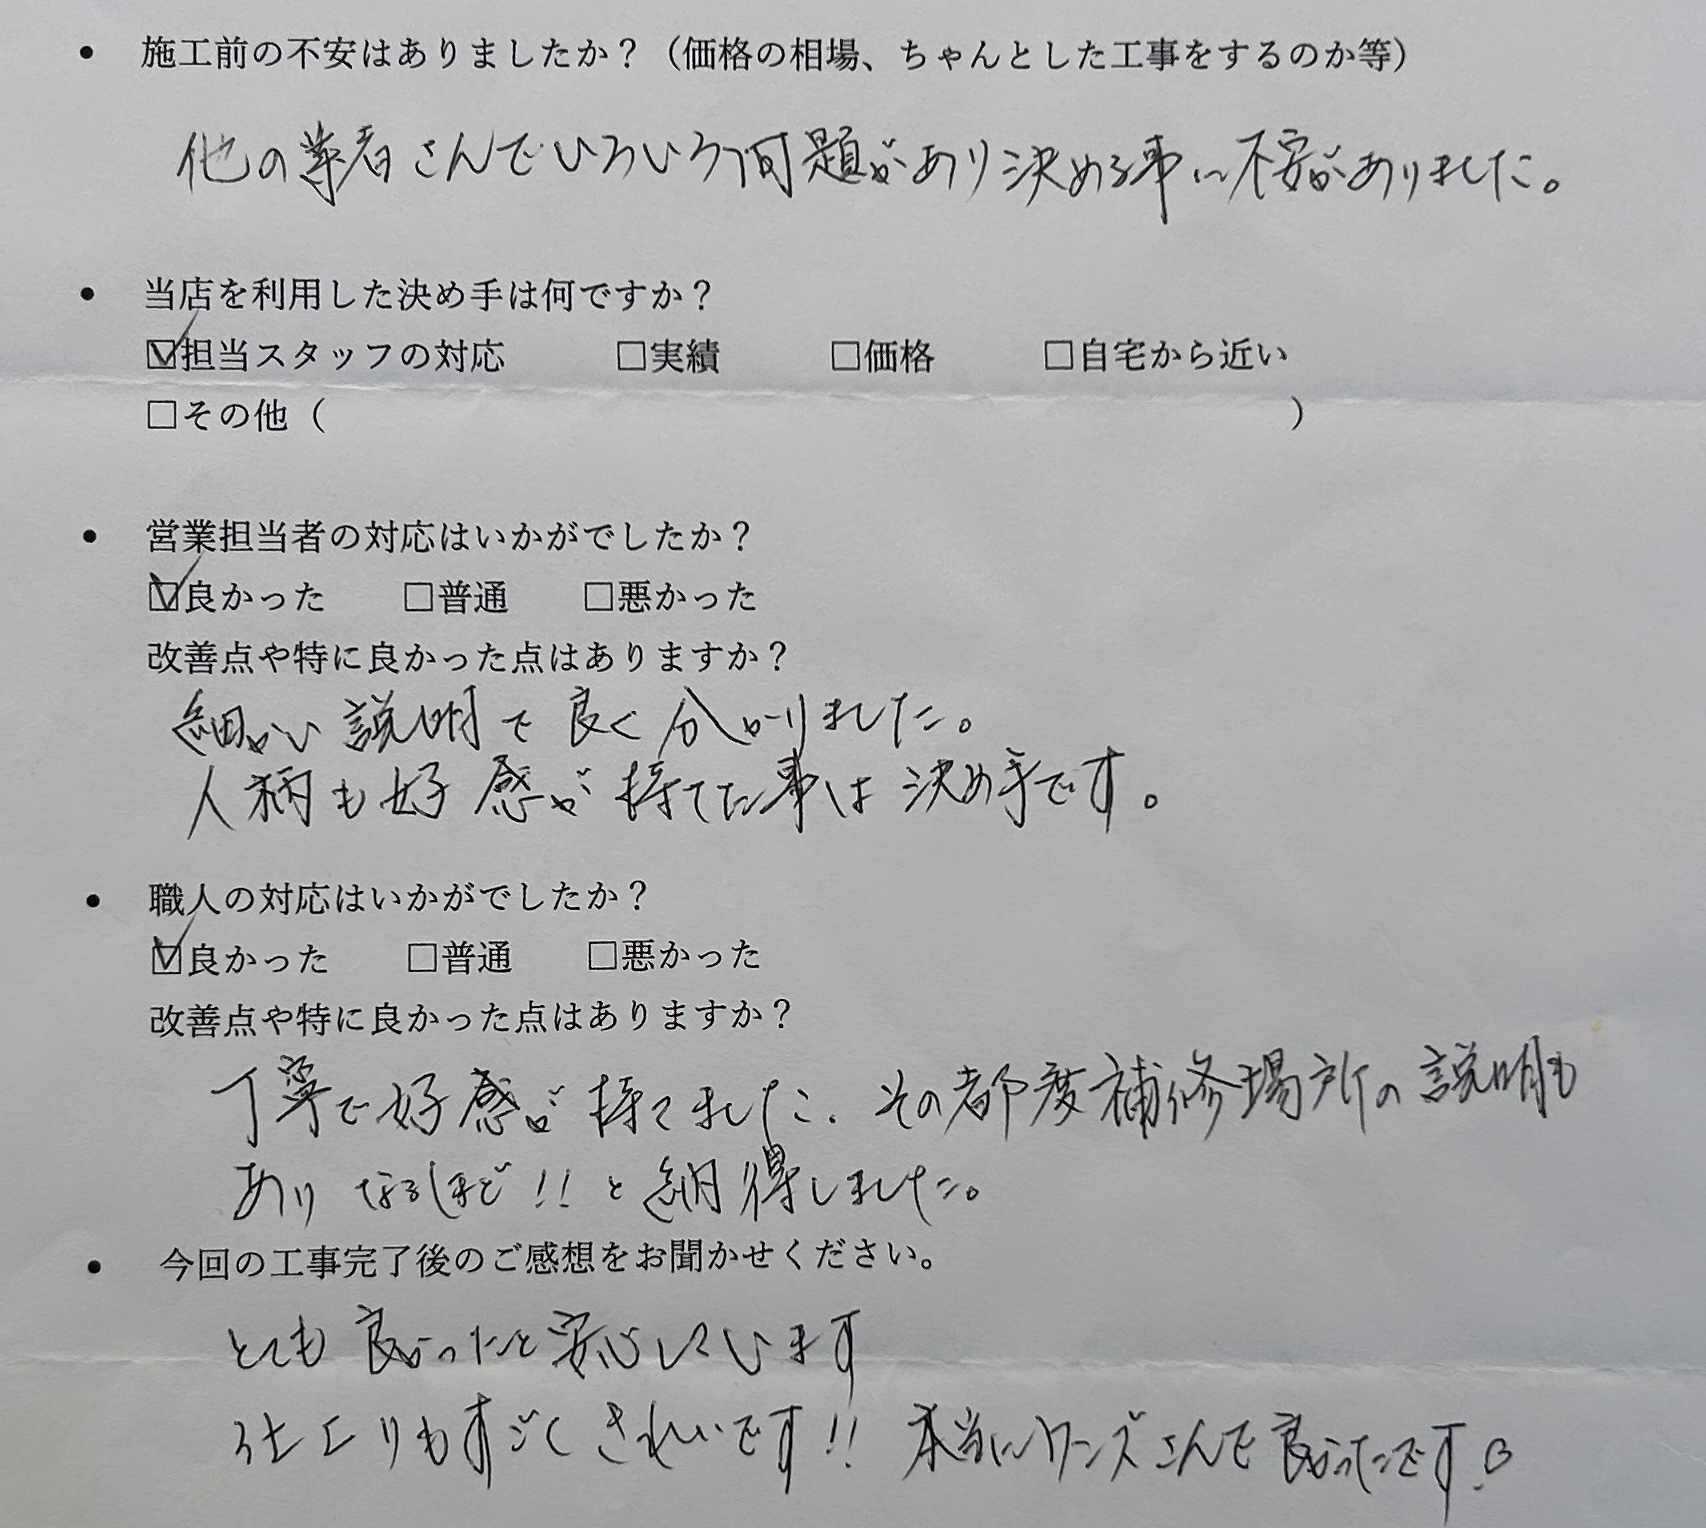 • 施工前の不安はありましたか？（価格の相場、ちゃんとした工事をするのか等）
他の業者さんでいろいろ問題があり決める事に不安がありました。
• 当店を利用した決め手は何ですか？
☑担当スタッフの対応 □実績 □価格 □自宅から近い
□その他（ ）
• 営業担当者の対応はいかがでしたか？
☑良かった □普通 □悪かった
改善点や特に良かった点はありますか？
細かい説明で良く分かりました。
人柄も好感が持てた事は決め手です。
• 職人の対応はいかがでしたか？
☑良かった □普通 □悪かった
改善点や特に良かった点はありますか？
丁寧で好感が持てました。その都度補修場所の説明も
あり なるほど!!と納得しました。
• 今回の工事完了後のご感想をお聞かせください。
とても良かったと安心しています
仕上りもすごくきれいです!! 本当にワンズさんで良かったです♡